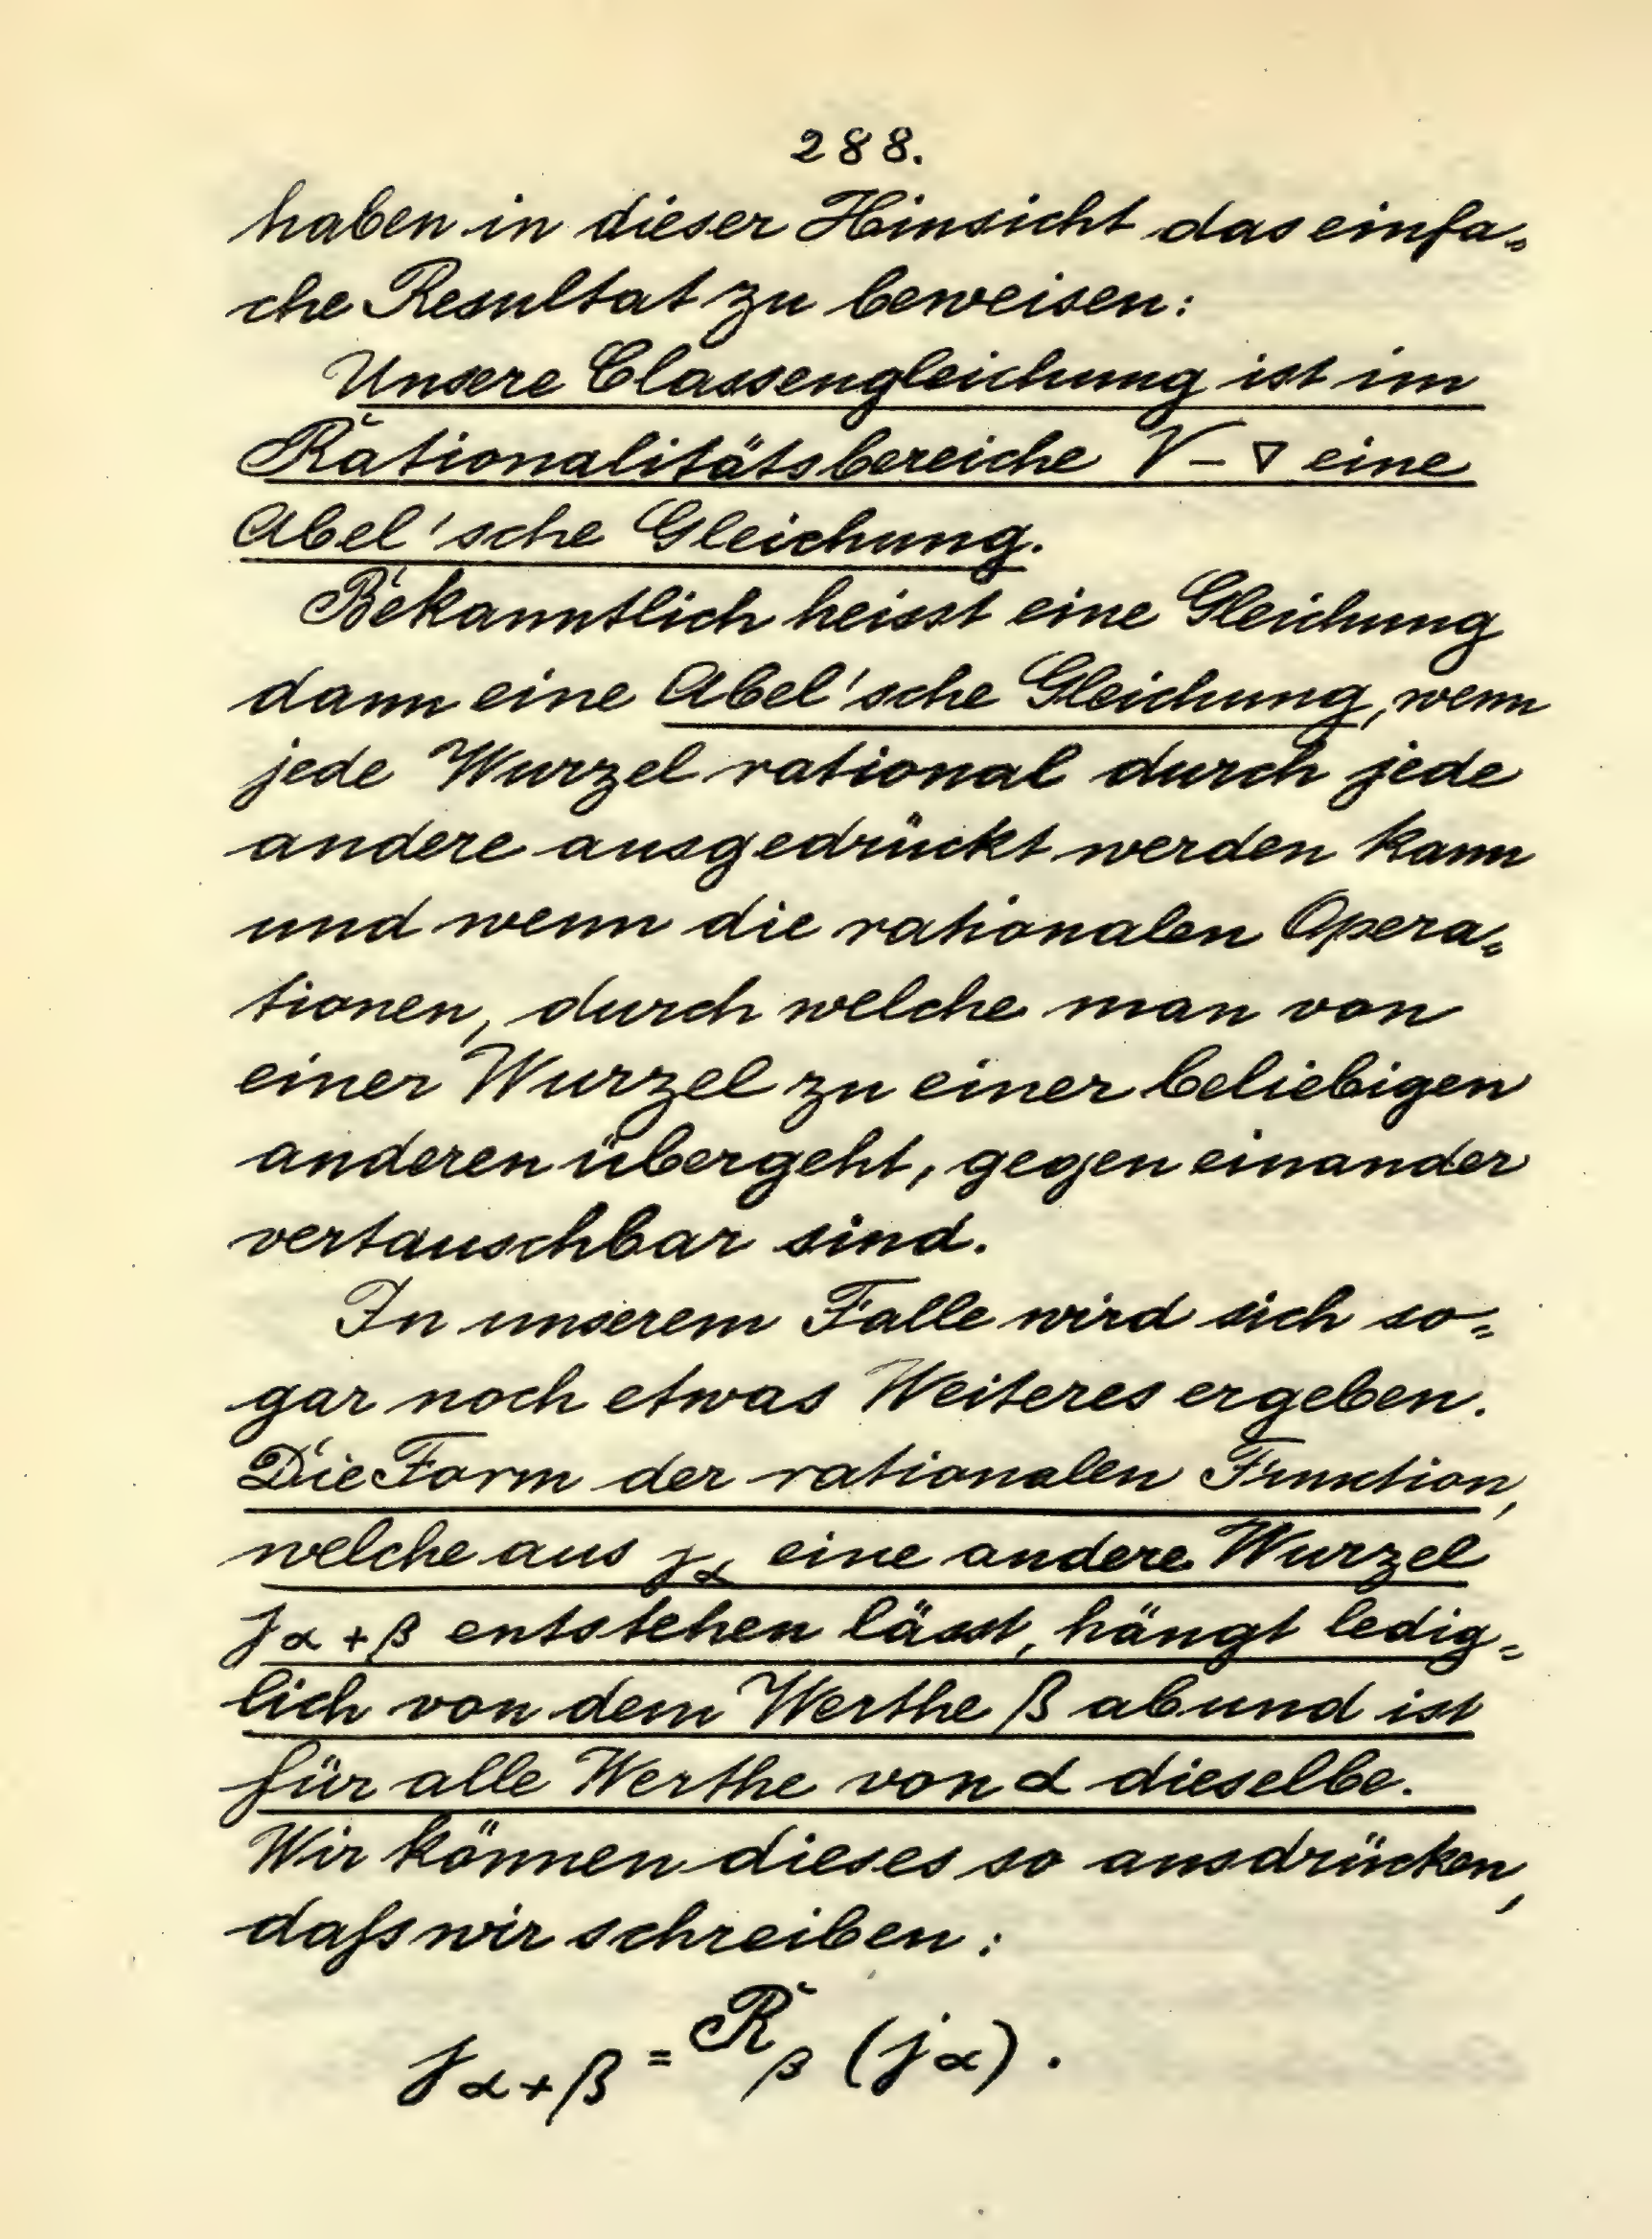 288.
haben in dieser Hinsicht das einfa=
che Resultat zu beweisen:
Unsere Classengleichung ist im
Rationalitätsbereiche √-∇ eine
Abel'sche Gleichung.
Bekanntlich heisst eine Gleichung
dann eine Abel'sche Gleichung, wenn
jede Wurzel rational durch jede
andere ausgedrückt werden kann
und wenn die rationalen Opera=
tionen, durch welche man von
einer Wurzel zu einer beliebigen
anderen übergeht, gegen einander
vertauschbar sind.
In unserem Falle wird sich so=
gar noch etwas Weiteres ergeben.
Die Form der rationalen Function,
welche aus j_α eine andere Wurzel
j_α+β entstehen lässt, hängt ledig=
lich von dem Werthe β ab und ist
für alle Werthe von α dieselbe.
Wir können dieses so ausdrücken,
daſs wir schreiben:
j_α+β = R_β (j_α).